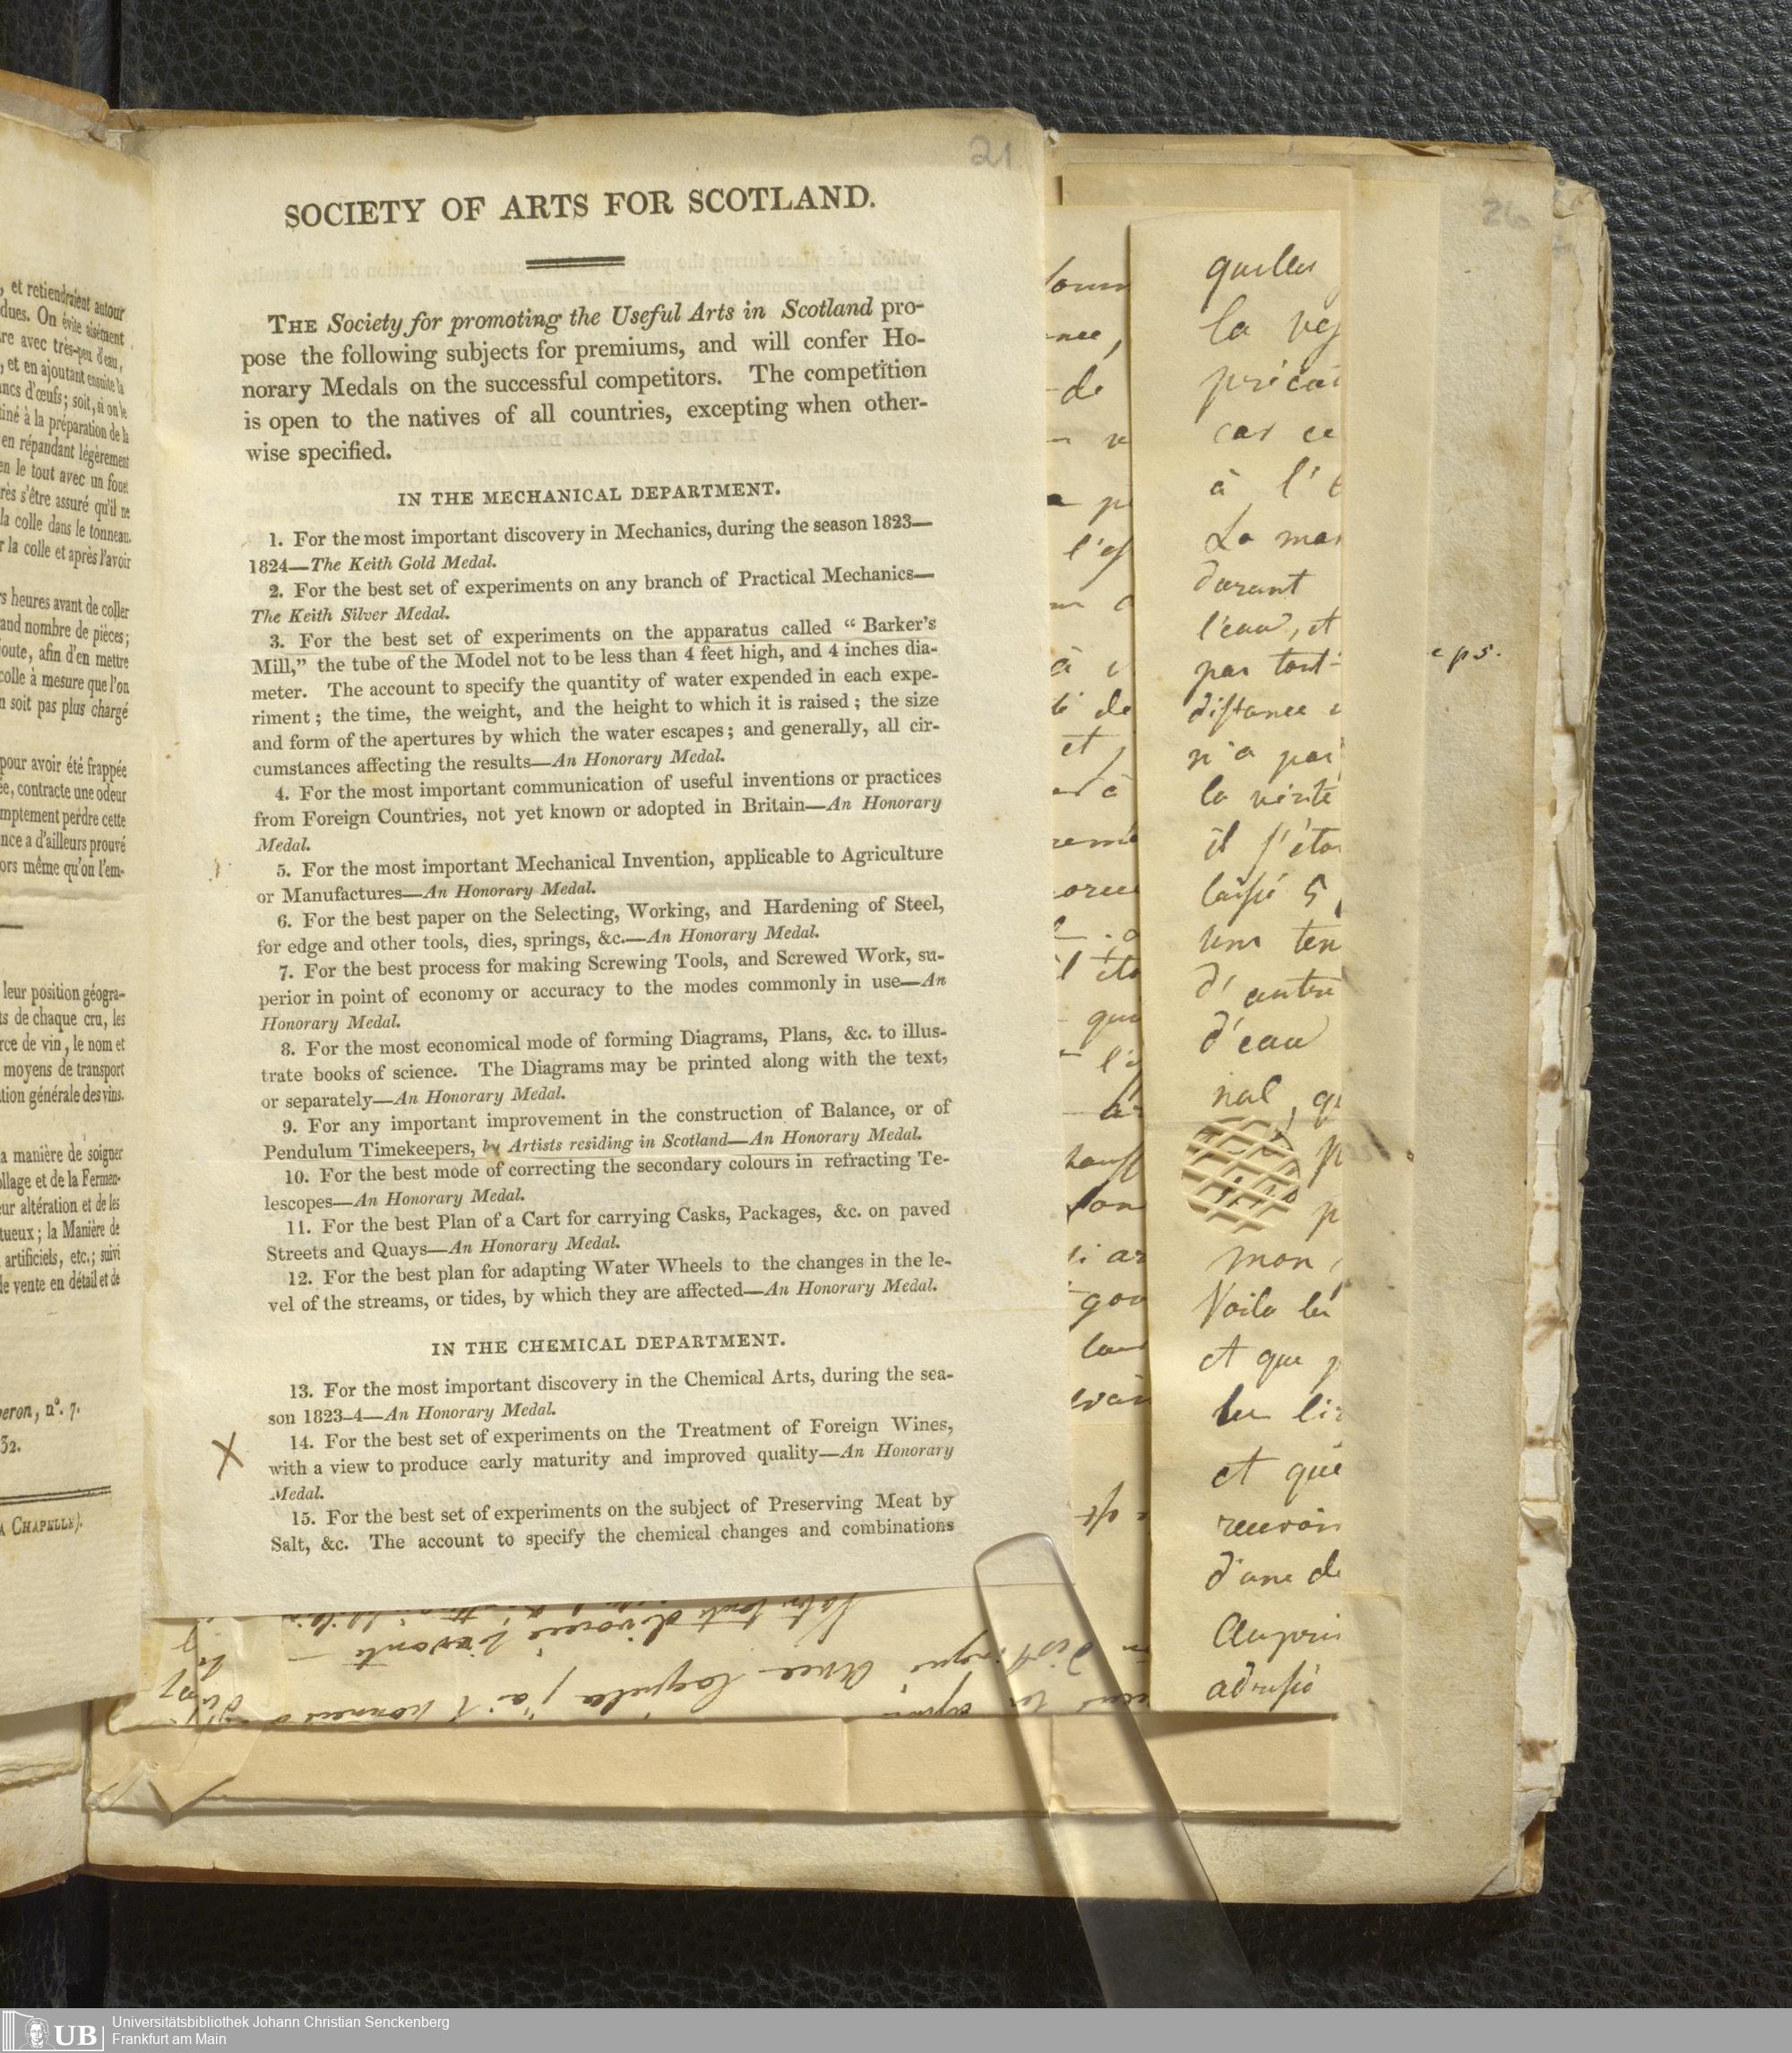 , et retiendraient autour
dues. On évite aisément
re avec très-peu d'eau,
, et en ajoutant ensuite la
ncs d'œufs; soit, si on le
tiné à la préparation de la
en répandant légèrement
en le tout avec un fouet
rès s'être assuré qu'il ne
la colle dans le tonneau.
r la colle et après l'avoir
s heures avant de coller
and nombre de pièces;
oute, afin d'en mettre
colle à mesure que l'on
n soit pas plus chargé
pour avoir été frappée
ée, contracte une odeur
mptement perdre cette
nce a d'ailleurs prouvé
ors même qu'on l'em-
leur position géogra-
ts de chaque cru, les
rce de vin, le nom et
moyens de transport
tion générale des vins.
a manière de soigner
ollage et de la Fermen-
eur altération et de les
tueux; la Manière de
artificiels, etc.; suivi
de vente en détail et de
eron, n°. 7.
32.
A CHAPELLE).
21
SOCIETY OF ARTS FOR SCOTLAND.
THE Society for promoting the Useful Arts in Scotland pro-
pose the following subjects for premiums, and will confer Ho-
norary Medals on the successful competitors. The competition
is open to the natives of all countries, excepting when other-
wise specified.
IN THE MECHANICAL DEPARTMENT.
1. For the most important discovery in Mechanics, during the season 1823—
1824—The Keith Gold Medal.
2. For the best set of experiments on any branch of Practical Mechanics—
The Keith Silver Medal.
3. For the best set of experiments on the apparatus called “ Barker's
Mill,” the tube of the Model not to be less than 4 feet high, and 4 inches dia-
meter. The account to specify the quantity of water expended in each expe-
riment; the time, the weight, and the height to which it is raised; the size
and form of the apertures by which the water escapes; and generally, all cir-
cumstances affecting the results—An Honorary Medal.
4. For the most important communication of useful inventions or practices
from Foreign Countries, not yet known or adopted in Britain—An Honorary
Medal.
5. For the most important Mechanical Invention, applicable to Agriculture
or Manufactures—An Honorary Medal.
6. For the best paper on the Selecting, Working, and Hardening of Steel,
for edge and other tools, dies, springs, &c.—An Honorary Medal.
7. For the best process for making Screwing Tools, and Screwed Work, su-
perior in point of economy or accuracy to the modes commonly in use—An
Honorary Medal.
8. For the most economical mode of forming Diagrams, Plans, &c. to illus-
trate books of science. The Diagrams may be printed along with the text,
or separately—An Honorary Medal.
9. For any important improvement in the construction of Balance, or of
Pendulum Timekeepers, by Artists residing in Scotland—An Honorary Medal.
10. For the best mode of correcting the secondary colours in refracting Te-
lescopes—An Honorary Medal.
11. For the best Plan of a Cart for carrying Casks, Packages, &c. on paved
Streets and Quays—An Honorary Medal.
12. For the best plan for adapting Water Wheels to the changes in the le-
vel of the streams, or tides, by which they are affected—An Honorary Medal.
IN THE CHEMICAL DEPARTMENT.
13. For the most important discovery in the Chemical Arts, during the sea-
son 1823-4—An Honorary Medal.
X
14. For the best set of experiments on the Treatment of Foreign Wines,
with a view to produce early maturity and improved quality—An Honorary
Medal.
15. For the best set of experiments on the subject of Preserving Meat by
Salt, &c. The account to specify the chemical changes and combinations
26
quelles
la
car ce
à l'
La
durant
l'eau, et
par tout-
distance
n'a pas
la
il
laissé 5
d'autre
d'eau
nal
mon
Voila
et que
et que
d'une de
de
et
UB
Universitätsbibliothek Johann Christian Senckenberg
Frankfurt am Main